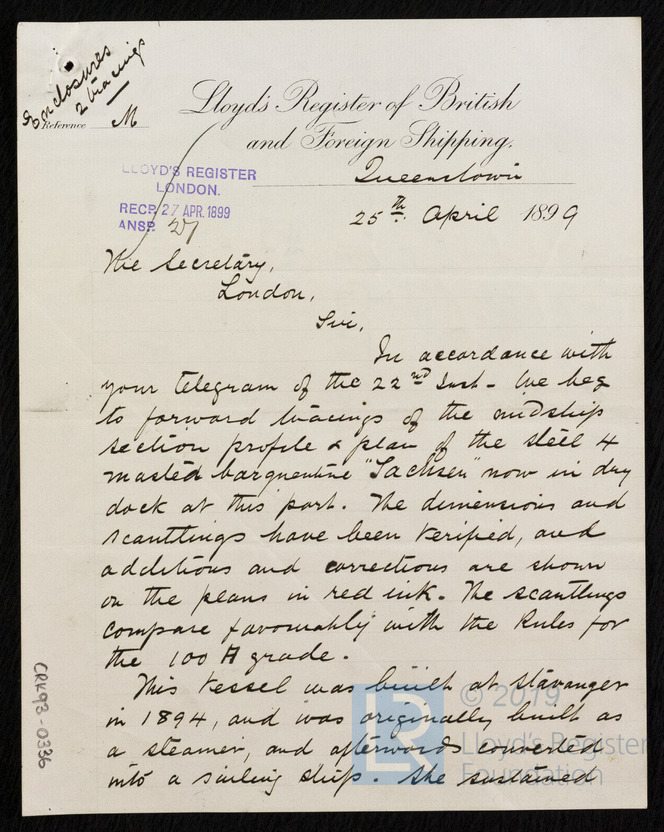 Enclosures
2 tracings
Reference M
Lloyd's Register of British
and Foreign Shipping.
Queenstown
LLOYD'S REGISTER
LONDON.
RECD. 27 APR. 1899
ANSD. 27
25th. April 1899
The Secretary,
London,
Sir,
In accordance with
your telegram of the 22nd Inst - We beg
to forward tracings of the midship
section profile & plan of the steel 4
masted barquentine "Sachsen" now in dry
dock at this port. The dimensions and
scantlings have been verified, and
additions and corrections are shown
on the plans in red ink. The scantlings
compare favourably with the Rules for
the 100 A grade.
This vessel was built at Stavanger
in 1894, and was originally built as
a steamer, and afterwards converted
into a sailing ship. She sustained
CRK93-0336
© 2019
Lloyd's Register
Foundation
LR